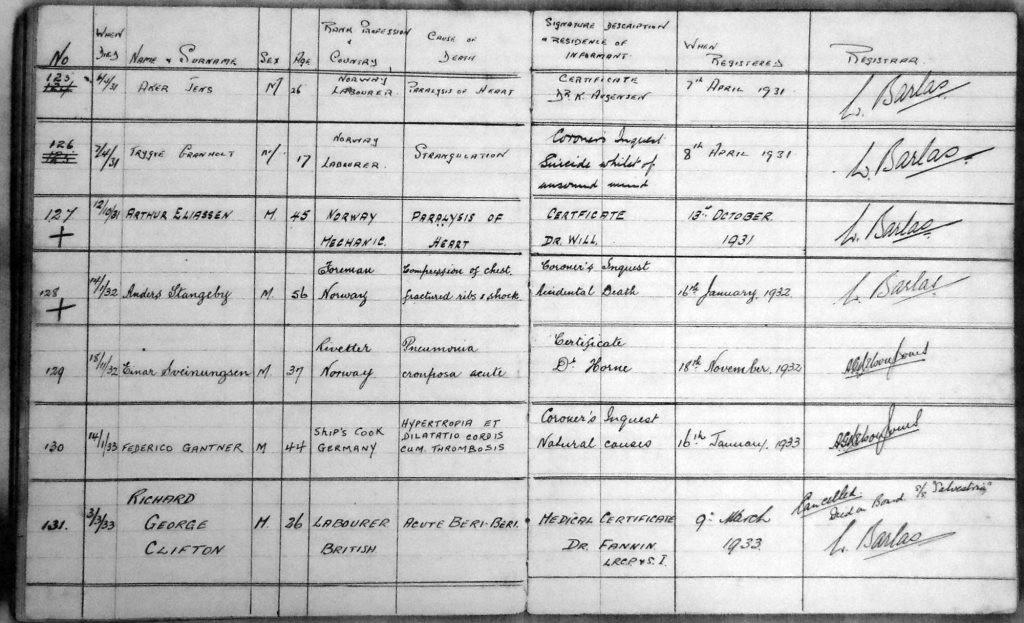 No
WHEN DIED
NAME & SURNAME
SEX
AGE
RANK PROFESSION & COUNTRY
CAUSE OF DEATH
SIGNATURE DESCRIPTION & RESIDENCE OF INFORMANT
WHEN REGISTERED
REGISTRAR
125 4/4/31 AKER JENS M 26 NORWAY LABOURER PARALYSIS OF HEART CERTIFICATE DR K. 7th APRIL 1931 W. Barlas
126 7/4/31 TRYGVE GRANHOLT M 17 NORWAY LABOURER. STRANGULATION Coroners Inquest Suicide whilst of unsound mind 8th APRIL 1931 W. Barlas
127 + 12/10/31 ARTHUR ELIASSEN M. 45 NORWAY MECHANIC. PARALYSIS OF HEART CERTFICATE DR. WILL. 13th OCTOBER 1931 W. Barlas
128 + 14/1/32 Anders Stangeby M. 56 Foreman Norway Compression of chest fractured ribs & shock Coroner's Inquest Accidental Death 16th January, 1932 W. Barlas
129 18/11/32 Einar Sveinungsen M. 37 Rivetter Norway Pneumonia crouposa acute Certificate Dr Horne 18th November, 1932
130 14/1/33 FEDERICO GANTNER M 44 SHIP'S COOK GERMANY HYPERTROPIA ET DILATATIO CORDIS CUM. THROMBOSIS Coroner's Inquest Natural causes 16th January, 1933
131. 3/3/33 RICHARD GEORGE CLIFTON M. 26 LABOURER BRITISH ACUTE BERI-BERI. MEDICAL CERTIFICATE DR. FANNIN L.R.C.P. & S. I. 9th March 1933 Cancelled. Died on Board S/S "Salvestria" W. Barlas